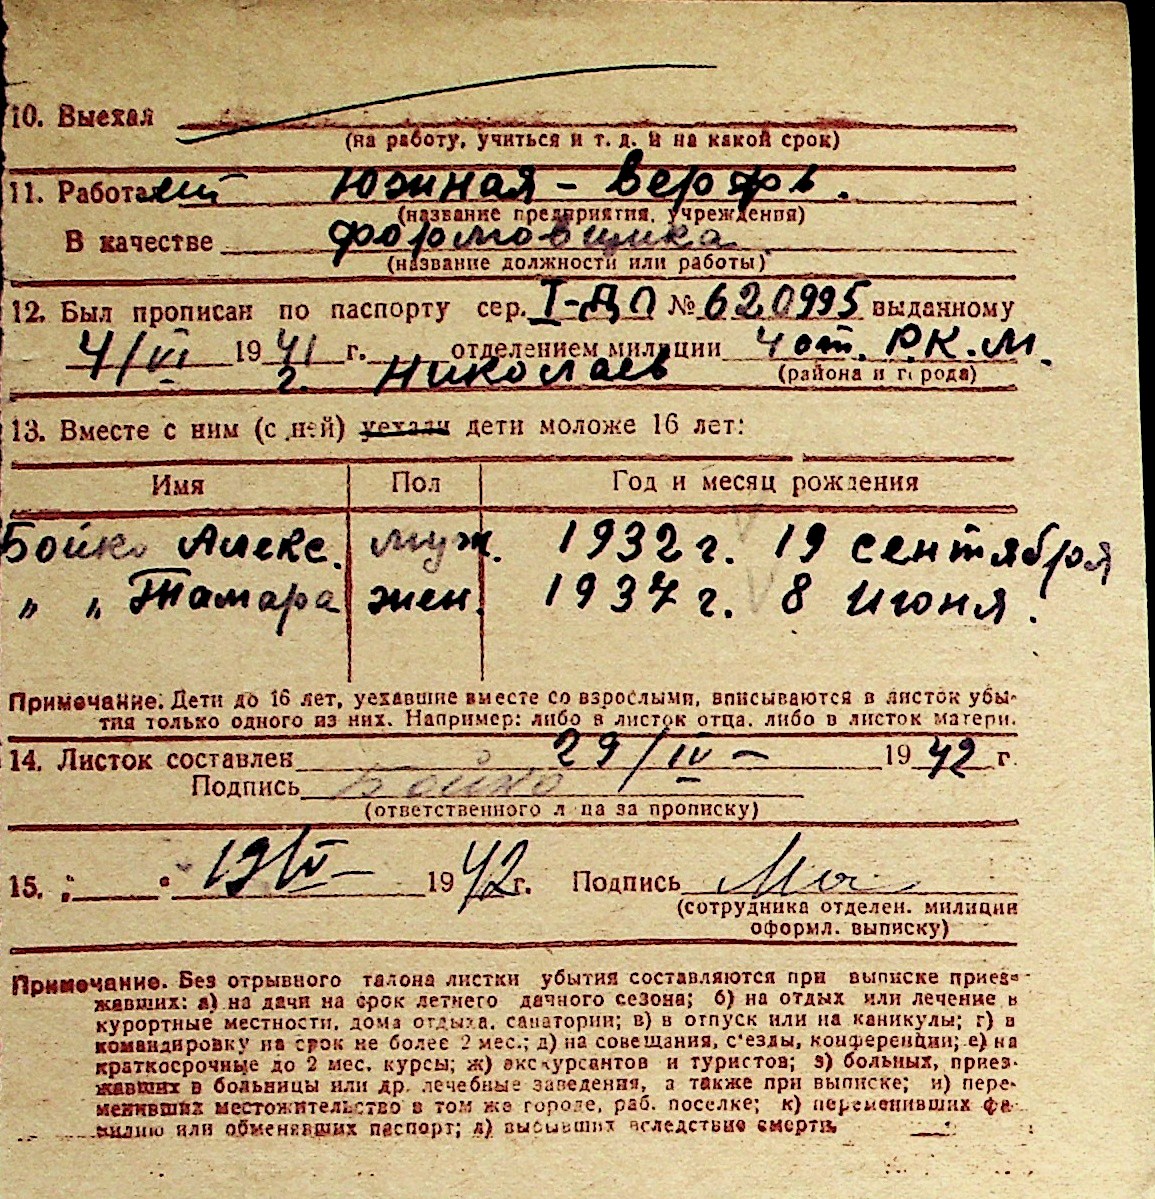 10. Выехал
(на работу, учиться и т. д. и на какой срок)
11. Работает Южная - Верфь.
(название предприятия, учреждения)
В качестве формовщика
(название должности или работы)
12. Был прописан по паспорту сер. I-ДП № 620995 выданному
4/VI 1941 г. отделением милиции 4 от. Р.К.М.
г. Николаев (района и города)
13. Вместе с ним (с ней) уехали дети моложе 16 лет:
Имя Пол Год и месяц рождения
Бойко Алекс. муж. 1932 г. 19 сентября
„ „ Тамара жен. 1937 г. 8 Июня.
Примечание. Дети до 16 лет, уехавшие вместе со взрослыми, вписываются в листок убы-
тия только одного из них. Например: либо в листок отца, либо в листок матери.
14. Листок составлен 29/IV - 1942 г.
Подпись Бойко
(ответственного лица за прописку)
15. „ “ 1942 г. Подпись
(сотрудника отделен. милиции
оформл. выписку)
Примечание. Без отрывного талона листки убытия составляются при выписке приез-
жавших: а) на дачи на срок летнего дачного сезона; б) на отдых или лечение в
курортные местности, дома отдыха, санатории; в) в отпуск или на каникулы; г) в
командировку на срок не более 2 мес.; д) на совещания, с'езды, конференции; е) на
краткосрочные до 2 мес. курсы; ж) экскурсантов и туристов; з) больных, приез-
жавших в больницы или др. лечебные заведения, а также при выписке; и) пере-
менивших местожительство в том же городе, раб. поселке; к) переменивших фа-
милию или обменявших паспорт; л) выбывших вследствие смерти.